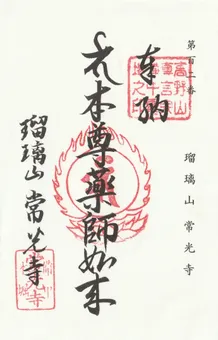 第百二番　瑠璃山常光寺
奉納
本尊薬師如来
瑠璃山　常光寺